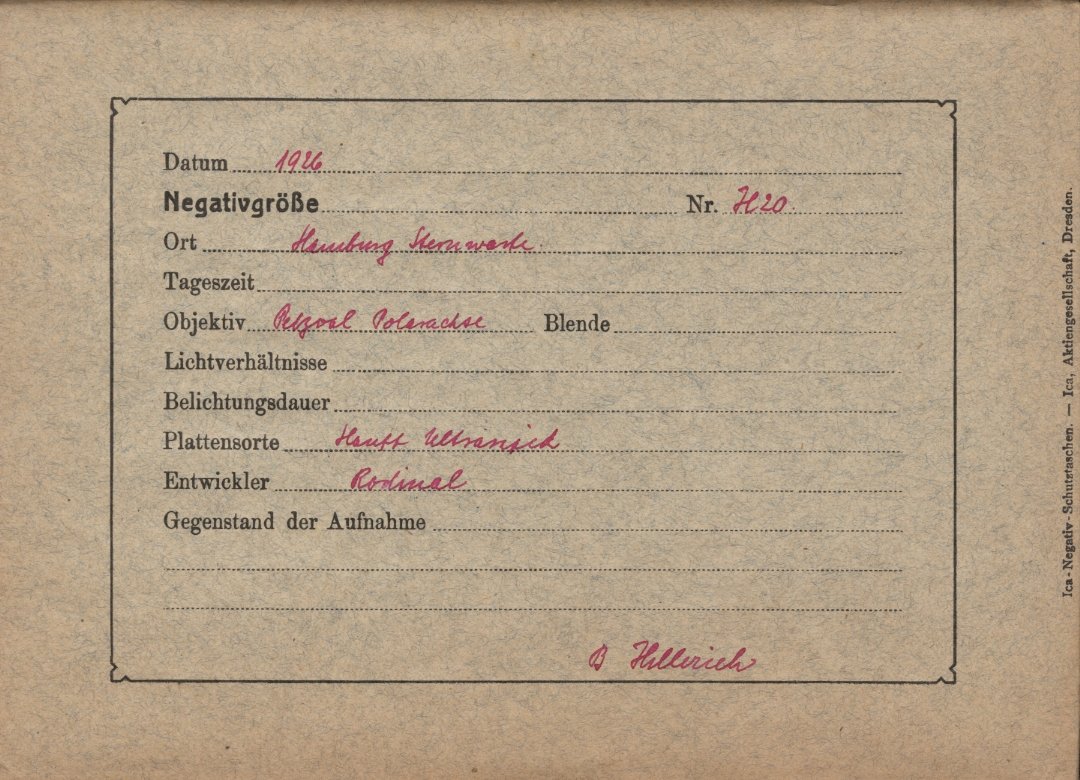 Datum 1926
Negativgröße Nr. H20
Ort Hamburg Sternwarte.
Tageszeit
Objektiv Petzval Polarachse Blende
Lichtverhältnisse
Belichtungsdauer
Plattensorte Hauff Ultrarapid
Entwickler Rodinal
Gegenstand der Aufnahme
B Hillerich
Ica-Negativ-Schutztaschen. — Ica, Aktiengesellschaft, Dresden.